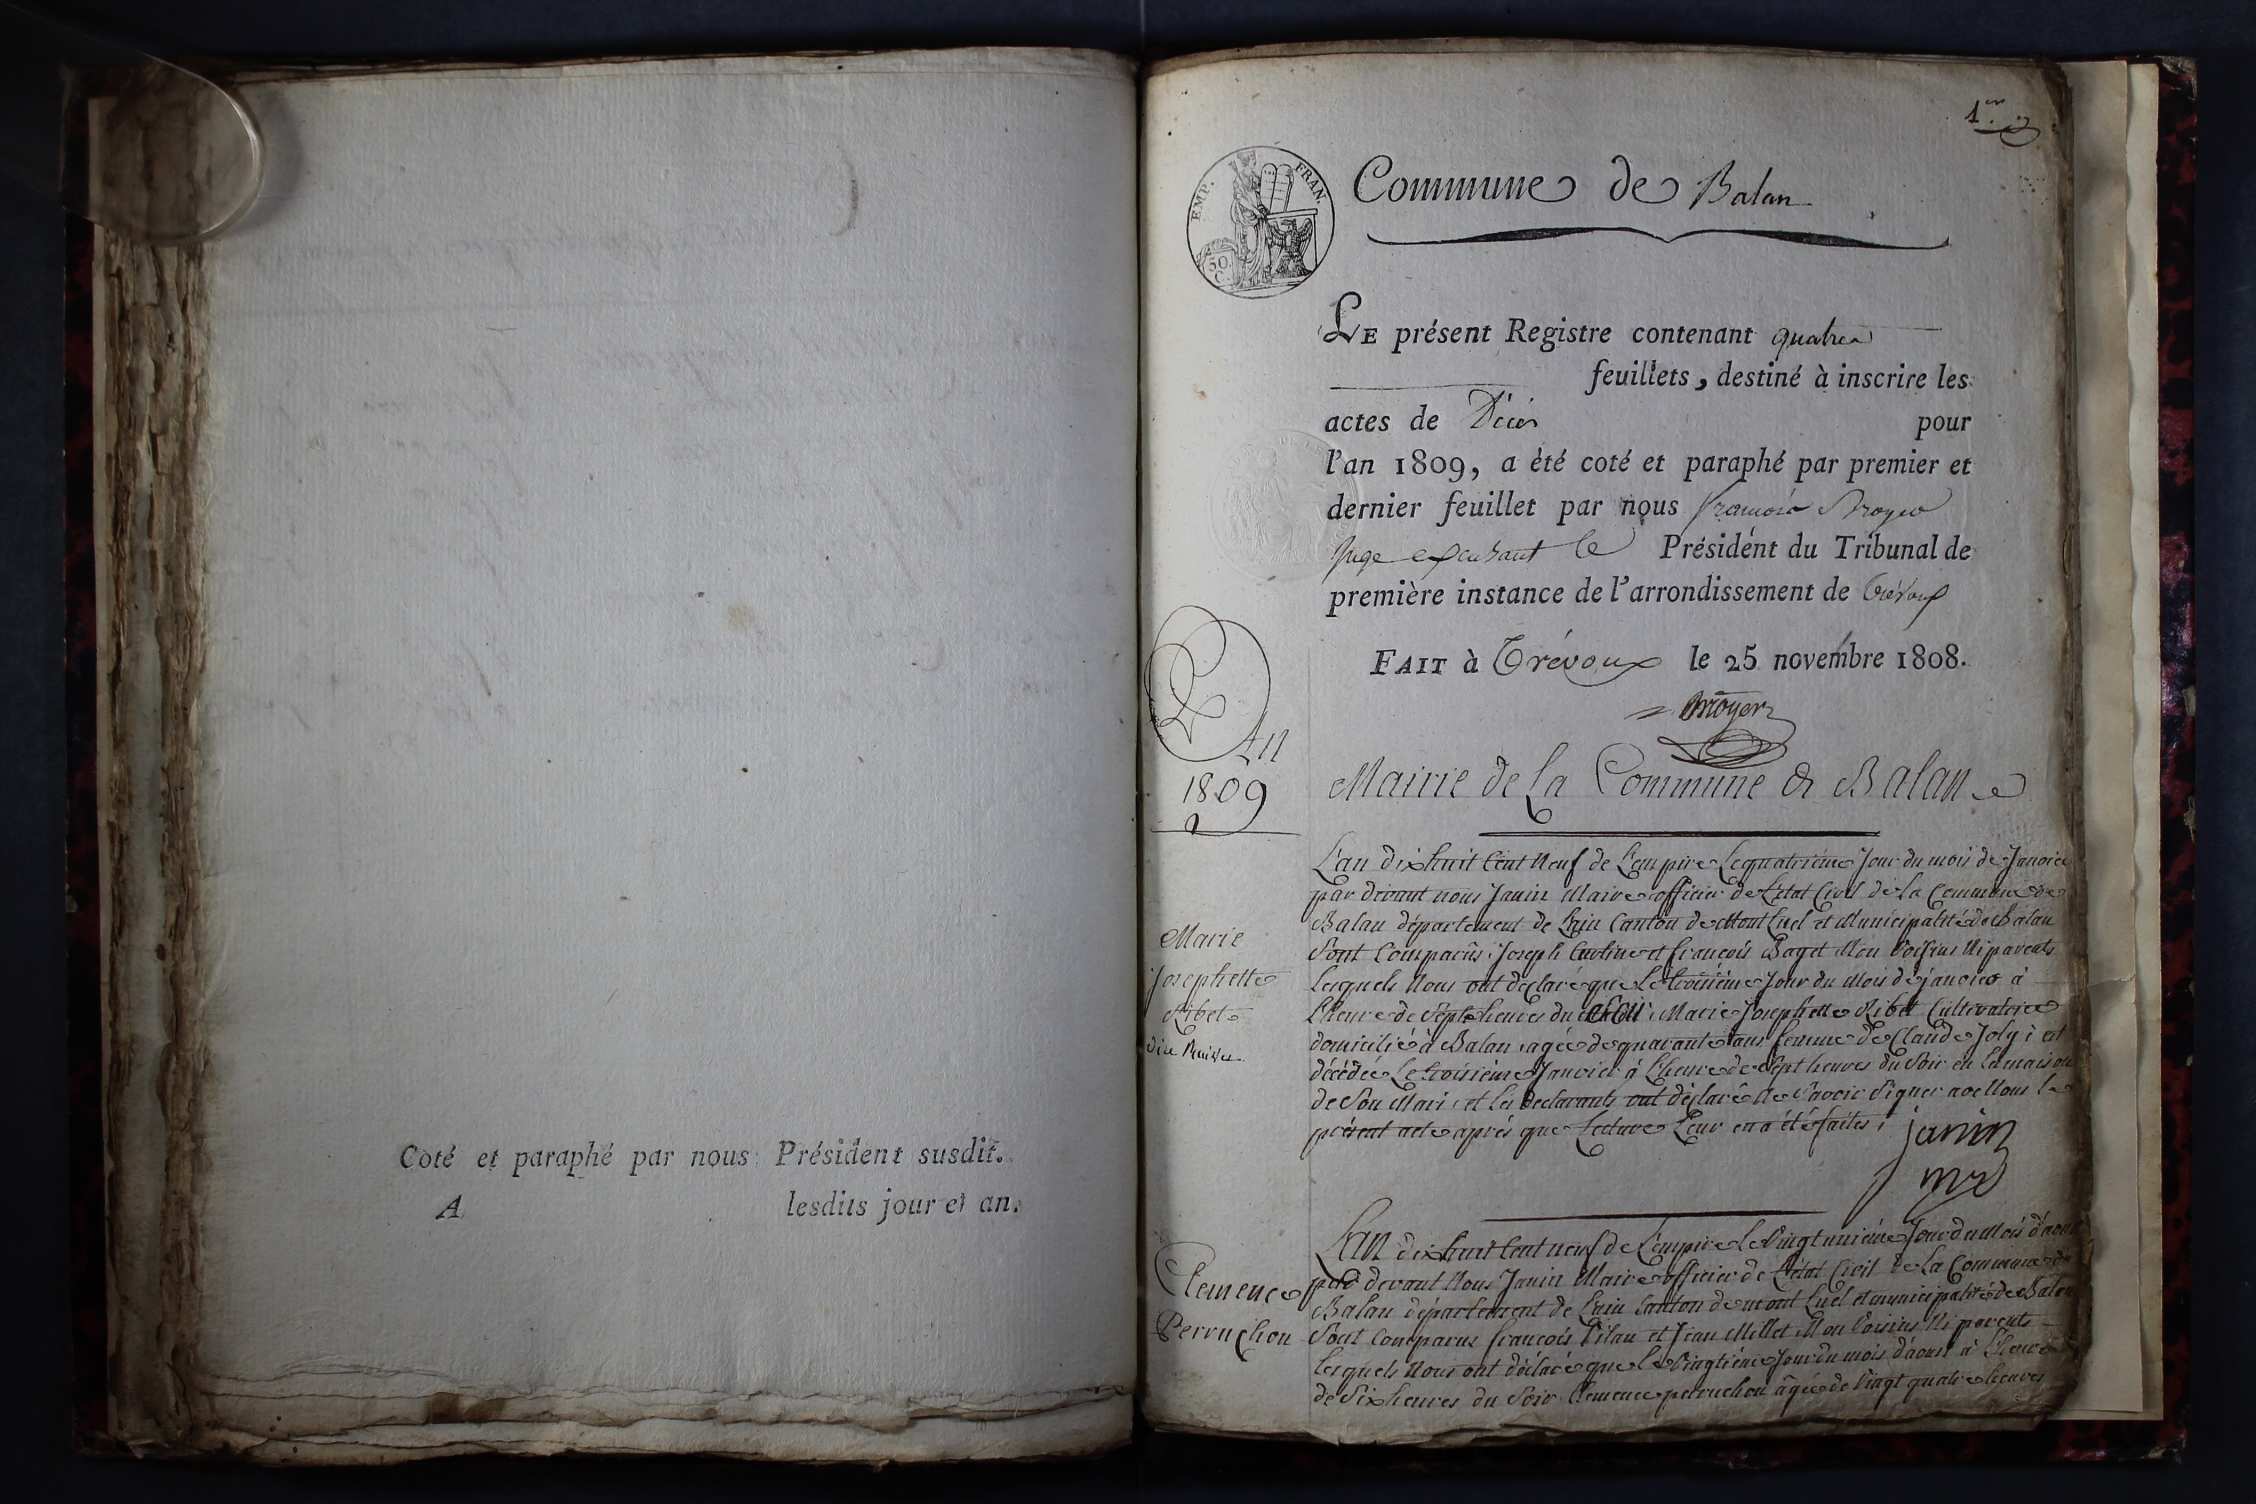 Coté et paraphé par nous Président susdit.
A lesdits jour et an.
1er
EMP. FRAN.
50 C.
Commune de Balan
LE présent Registre contenant quatre
feuillets, destiné à inscrire les
actes de Décès pour
l'an 1809, a été coté et paraphé par premier et
dernier feuillet par nous françois Broyer
Juge exerçant le Président du Tribunal de
première instance de l'arrondissement de Trévoux
FAIT à Trévoux le 25 novembre 1808.
Broyer
An
1809
Mairie de la Commune de Balan
L'an dix huit Cent Neuf de L'empire Le quatrième Jour du mois de Janvier
par devant nous Janin Maire officier de L'état Civil de la Commune de
Balan département de L'ain Canton de Mont Luel et Municipalité de Balan
Sont Comparus Joseph et françois Baget Mon Voisins Ni parents
Lesquels Nous ont déclaré que Le troisième Jour du Mois de janvier à
L'heure de Sept heures du Soir Marie Josephette Ribet Cultivatrice
domicilié à Balan agée de quarante ans femme de Claude Joly est
décédée Le troisième Janvier à L'heure de Sept heures du Soir en La maison
de Son Mari et Les declarants ont déclaré Ne Savoir Signer avec Nous Le
présent acte après que Lecture Leur en a été faites
janin
mre
Marie
Josephette
Ribet
L'an dix huit Cent neuf de L'empire Le Vingt unième Jour du Mois d'aoust
par devant Nous Janin Maire officier de L'état Civil de La Commune de
Balan département de L'ain Canton de mont Luel et municipalité de Balan
Sont Comparus françois Pilau et Jean Millet Mon Voisins Ni parents
Lesquels Nous ont déclaré que le Vingtième Jour du mois d'aoust à L'heure
de Six heures du Soir Clemence peruchon âgée de Vingt quatre heures
Clemence
Perruchon